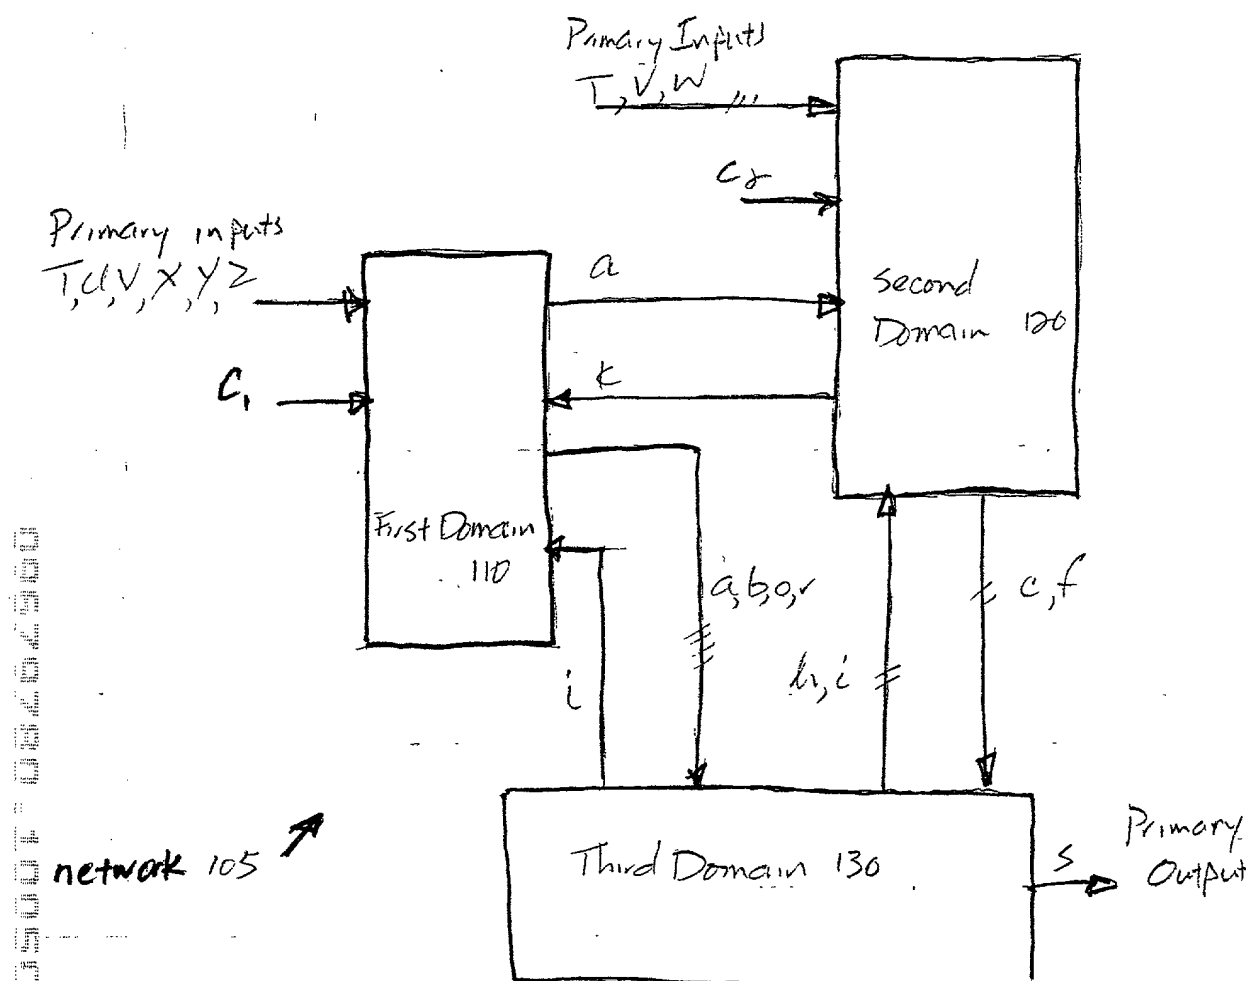 Primary Inputs
T, V, W
C2
Primary inputs
T, U, V, X, Y, Z
C1
a
k
Second
Domain 120
First Domain
110
a, b, o, r
c, f
h, i
i
network 105
Third Domain 130
s
Primary
Output